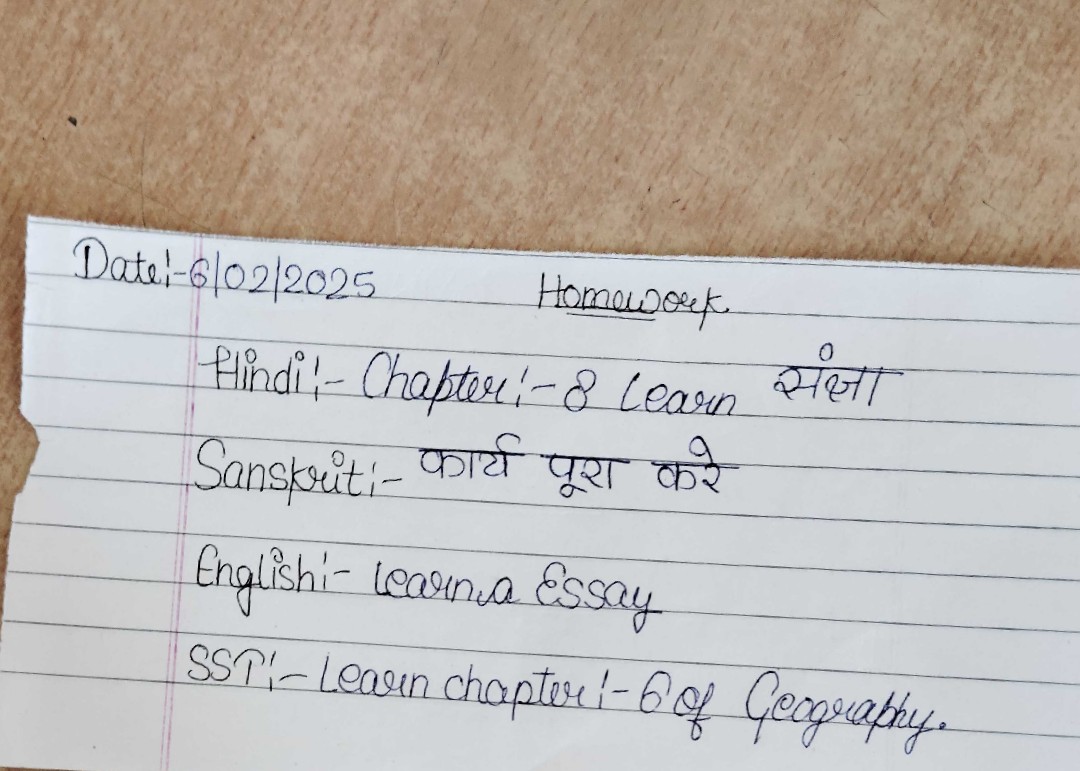 Date:-6/02/2025 Homework
Hindi:- Chapter:-8 Learn संज्ञा
Sanskrit:- कार्य पूरा करे
English:- Learn a Essay
SST:- Learn chapter:-6 of Geography.